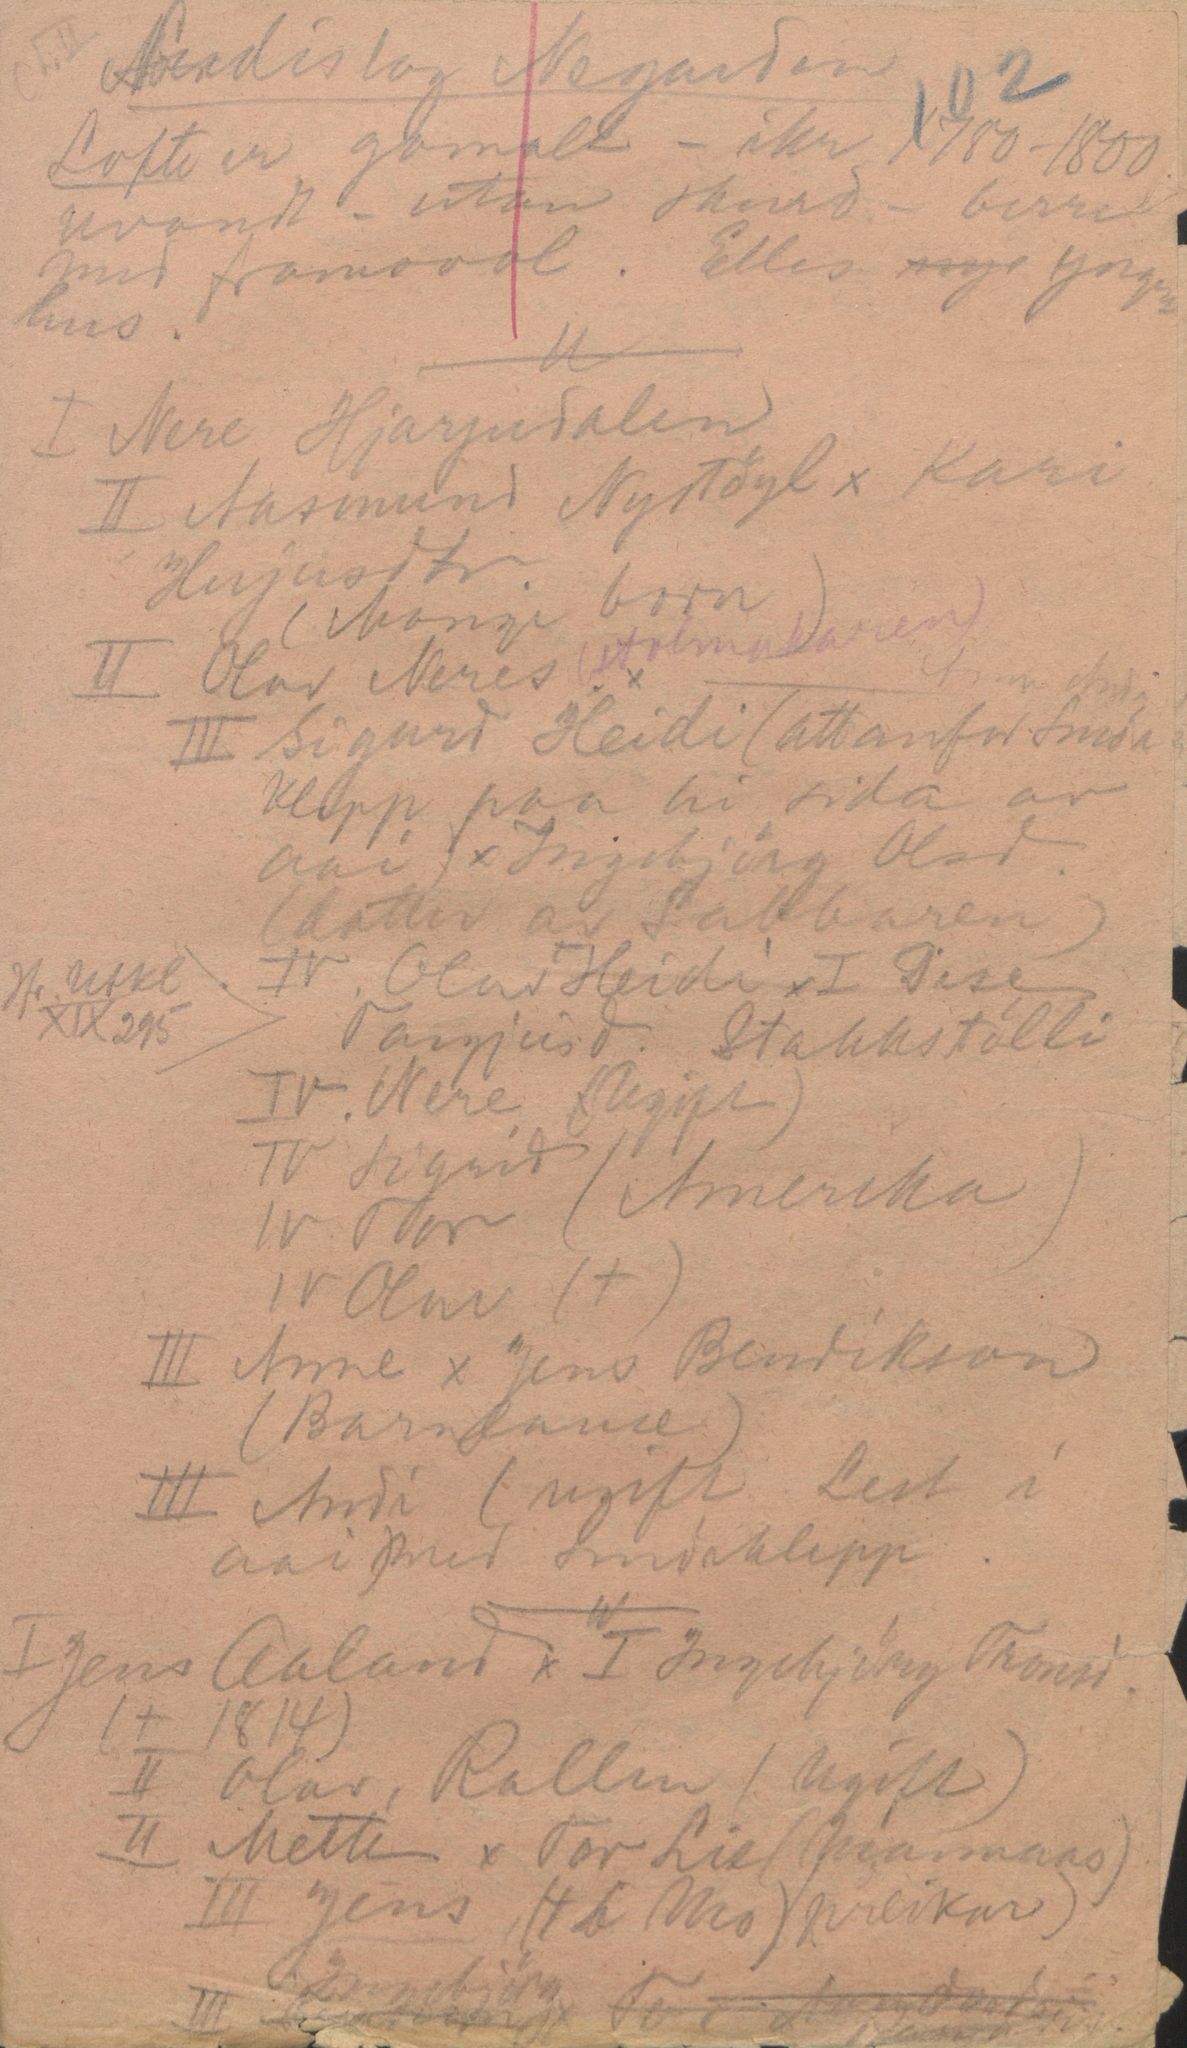 102
Nordistog Negarden
Lofte er gamalt - ikr 1780-1800
uvandt - utan skurd - berre
med framoval. Elles nye yngre
hus.
I Nere Hjarjudalen
II Aasmund Nystöyl x Kari
Herjusdtr.
(Mange born)
II Olav Neres (stolmakaren) x
III Sigurd Heidi (attanfor Smör
klepp paa hi sida av
aai) x Ingebjörg Olsd.
(dotter av Sabbaren)
Hr. Utkl XIX 295
IV. Olav Heidi x I Dise
Targjusd. Stakkstölli
IV. Nere (Ugift)
IV Sigrid (Amerika)
IV Tor
IV Olav (+)
III Anne x Jens Bendikson
(Barnlause)
III Andi (ugift Lest i
aai) med Smörklepp.
I Jens Aaland x I Ingebjörg Tronsd.
(+ 1814)
II Olav, Rallen (Ugift)
II Mette x Tor Lie
III Jens, (preikar)
III Ingebjörg